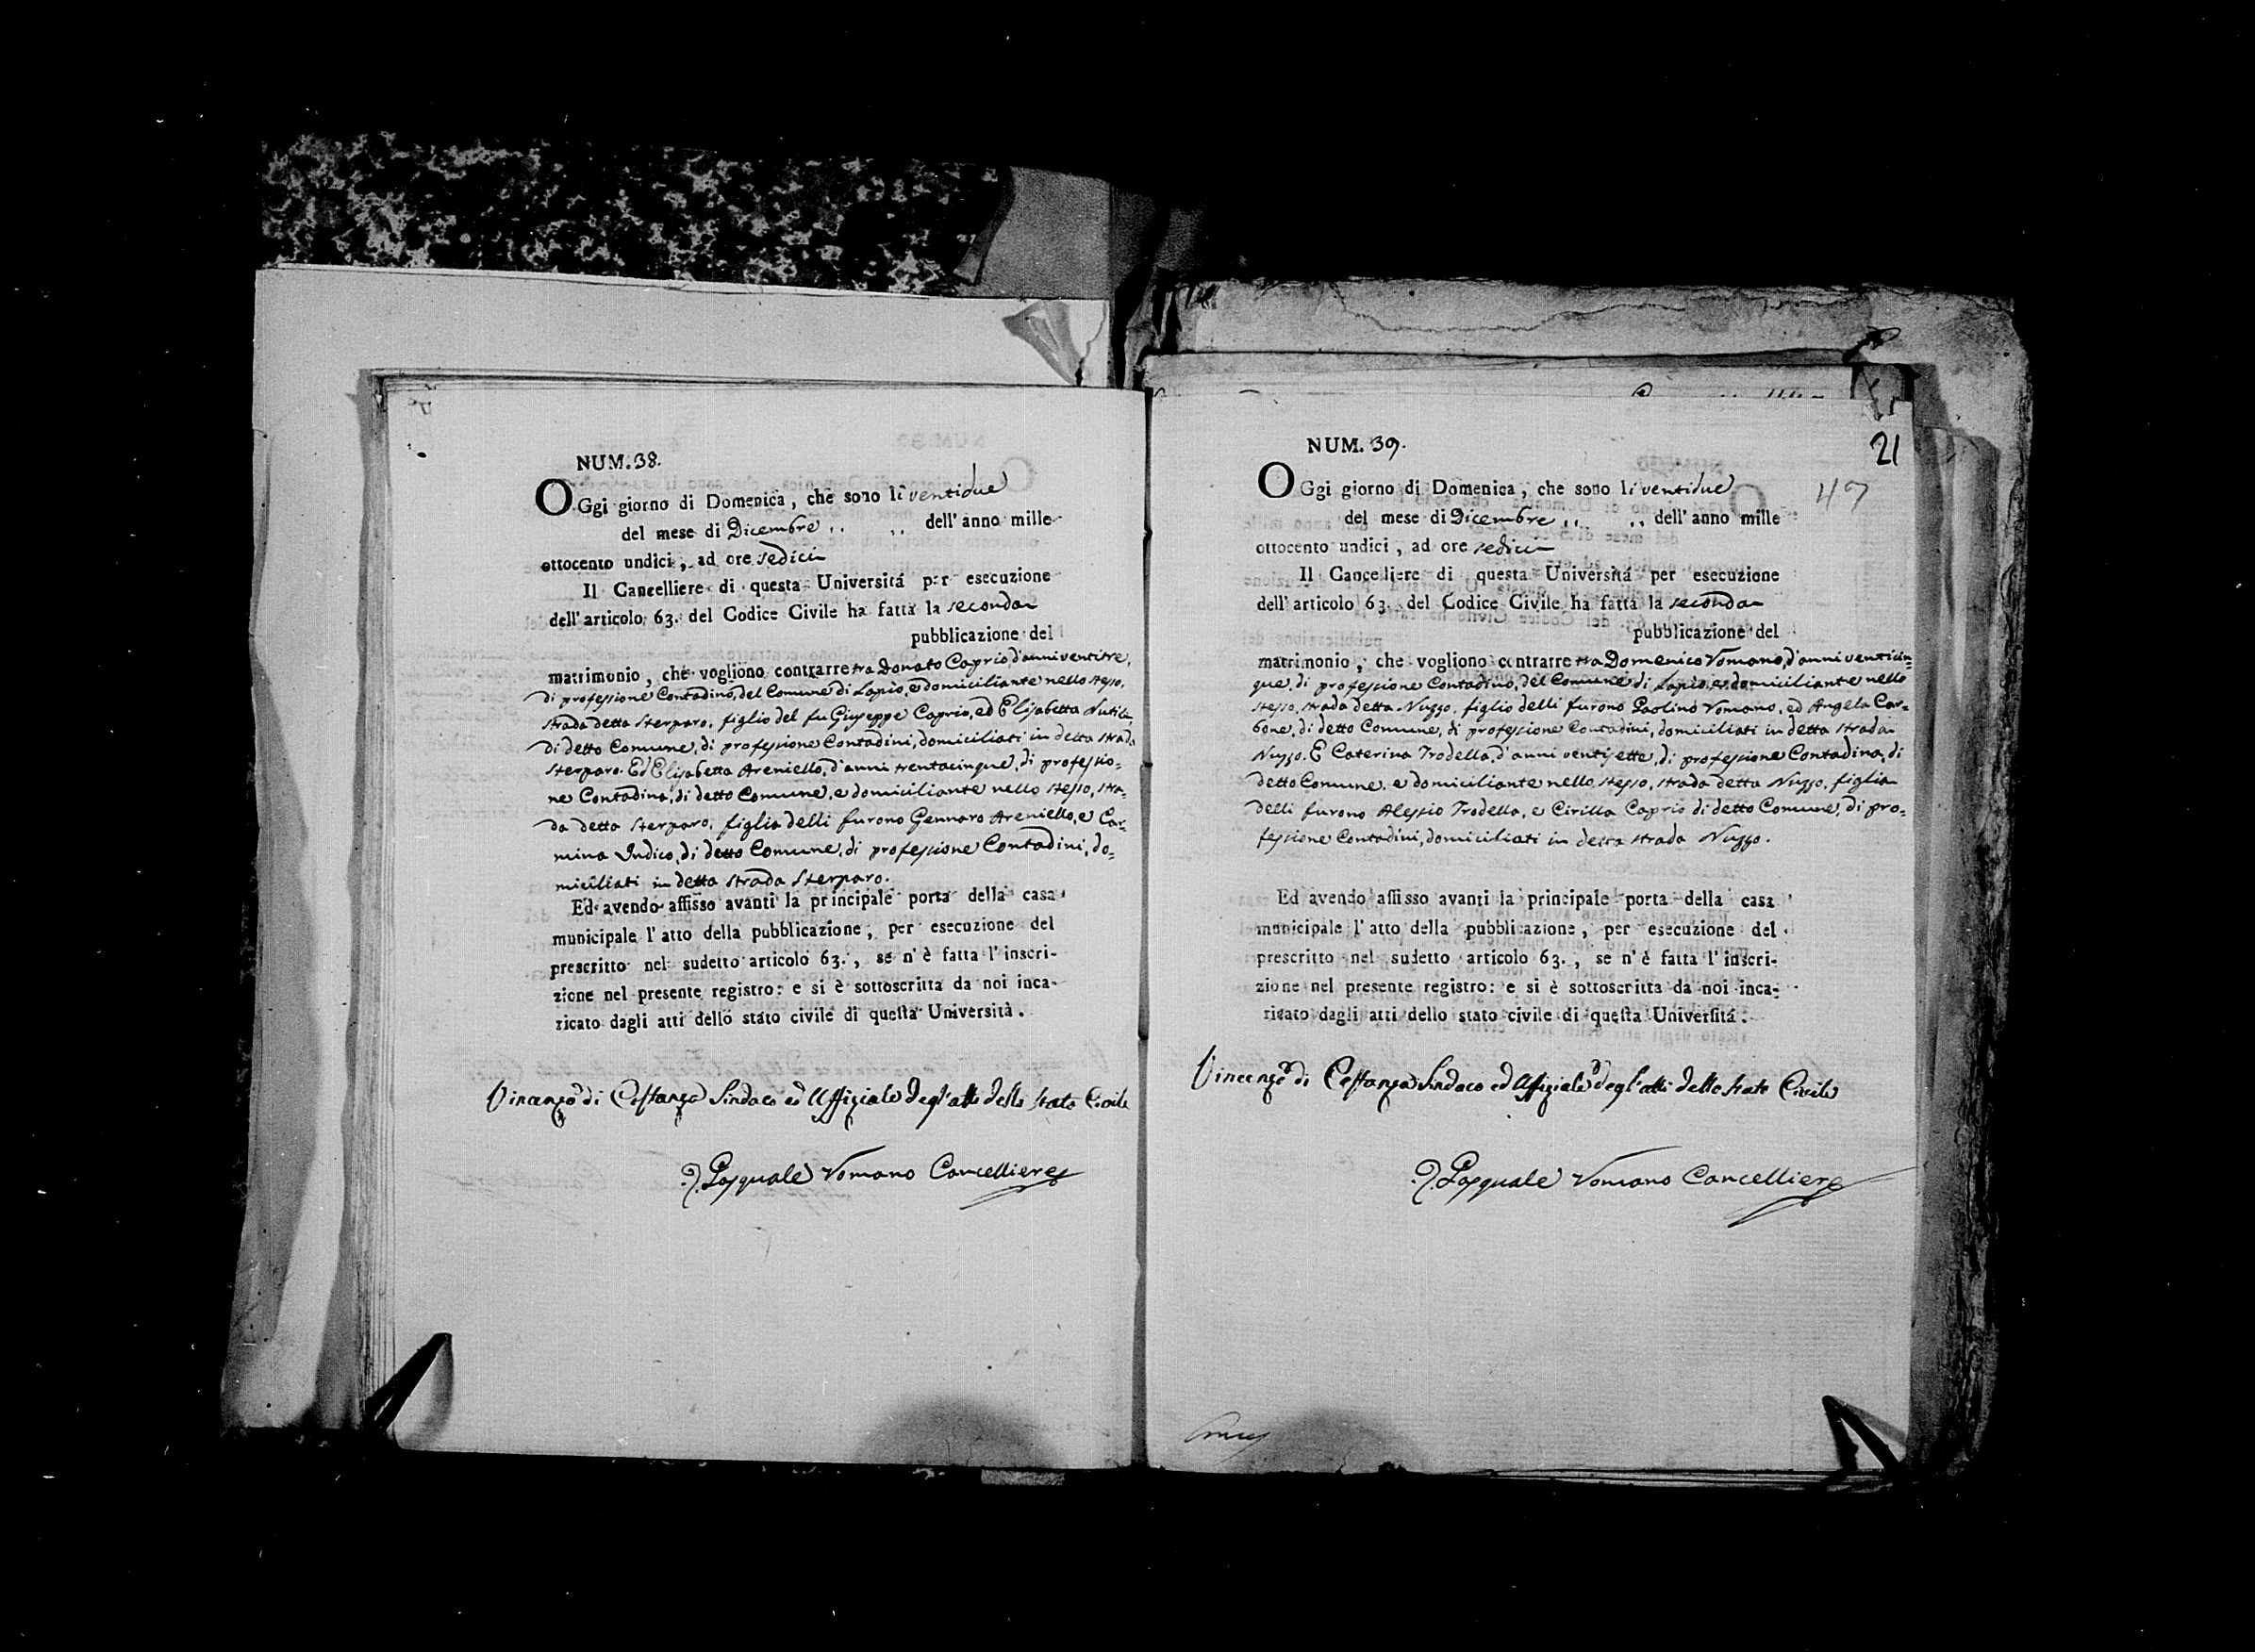 NUM. 38.
OGgi giorno di Domenica, che sono li ventidue
del mese di Dicembre .. .. dell'anno mille
ottocento undici, ad ore sedici
Il Cancelliere di questa Universitá per esecuzione
dell'articolo 63. del Codice Civile ha fatta la seconda
pubblicazione del
matrimonio, che vogliono contrarre tra Donato Caprio, d'anni ventitre,
di professione Contadino, del Comune di Lapio, e domiciliante nello stesso,
strada detta Sterparo, figlio del fu Giuseppe Caprio, ed Elisabetta
di detto Comune, di professione Contadini, domiciliati in detta strada
Sterparo. Ed Elisabetta Areniello, d'anni trentacinque, di professio=
ne Contadina, di detto Comune, e domiciliante nello stesso, stra=
da detta Sterparo, figlia delli furono Gennaro Areniello, e Car=
mina Indico, di detto Comune, di professione Contadini, do=
miciliati in detta strada Sterparo.
Ed avendo affisso avanti la principale porta della casa
municipale l'atto della pubblicazione, per esecuzione del
prescritto nel sudetto articolo 63., se n'è fatta l'inscri-
zione nel presente registro: e si è sottoscritta da noi inca-
ricato dagli atti dello stato civile di questa Università.
Vincenzo di Costanza Sindaco ed Uffiziale degl'atti dello stato Civile
Pasquale Vomano Cancelliere
21
47
NUM. 39.
OGgi giorno di Domenica, che sono li ventidue
del mese di Dicembre .. .. dell'anno mille
ottocento undici, ad ore sedici
Il Cancelliere di questa Universitá per esecuzione
dell'articolo 63. del Codice Civile ha fatta la seconda
pubblicazione del
matrimonio, che vogliono contrarre tra Domenico Vomano, d'anni venticin=
que, di professione Contadino, del Comune di Lapio, e domiciliante nello
stesso, strada detta Nuzzo, figlio delli furono Paolino Vomano, ed Angela Car=
bone, di detto Comune, di professione Contadini, domiciliati in detta strada
Nuzzo. E Caterina Trodella, d'anni ventisette, di professione Contadina, di
detto Comune, e domiciliante nello stesso, strada detta Nuzzo, figlia
delli furono Alessio Trodella, e Cirilla Caprio di detto Comune, di pro=
fessione Contadini, domiciliati in detta strada Nuzzo.
Ed avendo affisso avanti la principale porta della casa
municipale l'atto della pubblicazione, per esecuzione del
prescritto nel sudetto articolo 63., se n'é fatta l'inscri-
zione nel presente registro: e si è sottoscritta da noi inca-
ricato dagli atti dello stato civile di questa Universitá.
Vincenzo di Costanza Sindaco ed Uffiziale degl'atti dello stato Civile
Pasquale Vomano Cancelliere